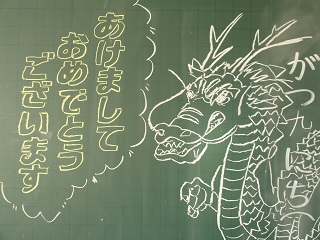 あけまして
おめでとう
ございます
がつ九にち